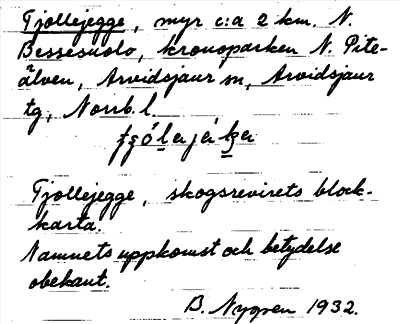 Tjollejegge, myr c:a 2 km. N.
Bessesuolo, kronoparken N. Pite-
älven, Arvidsjaur sn, Arvidsjaur
tg, Norrb. l.
Tjollejegge, skogsrevirets block-
karta.
Namnets uppkomst och betydelse
obekant.
B. Nygren 1932.